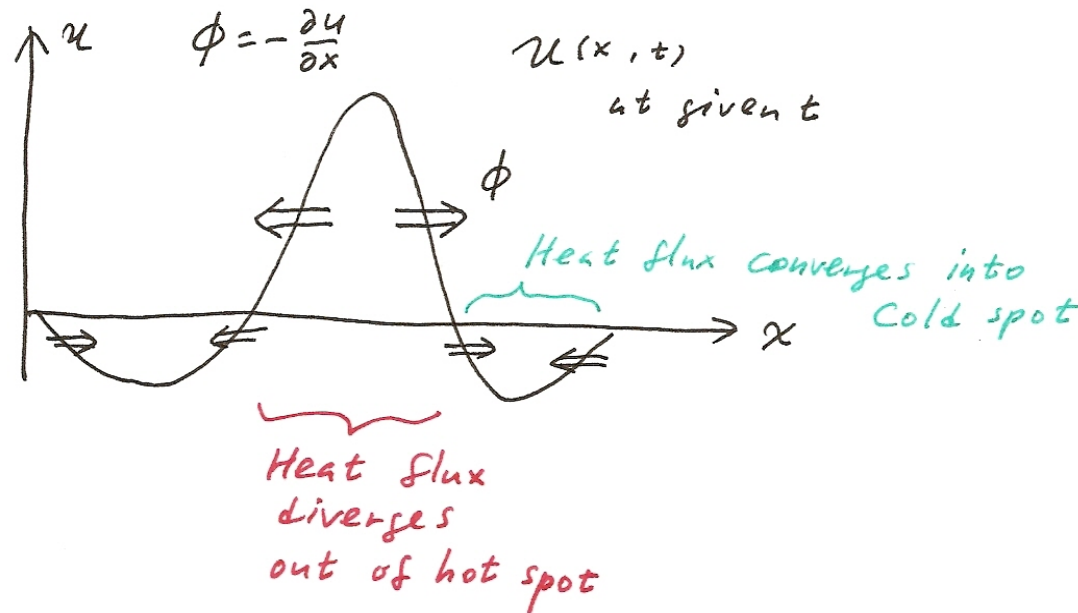 u
ϕ = - ∂u/∂x
u(x, t)
at given t
ϕ
Heat flux converges into
Cold spot
x
Heat flux
diverges
out of hot spot